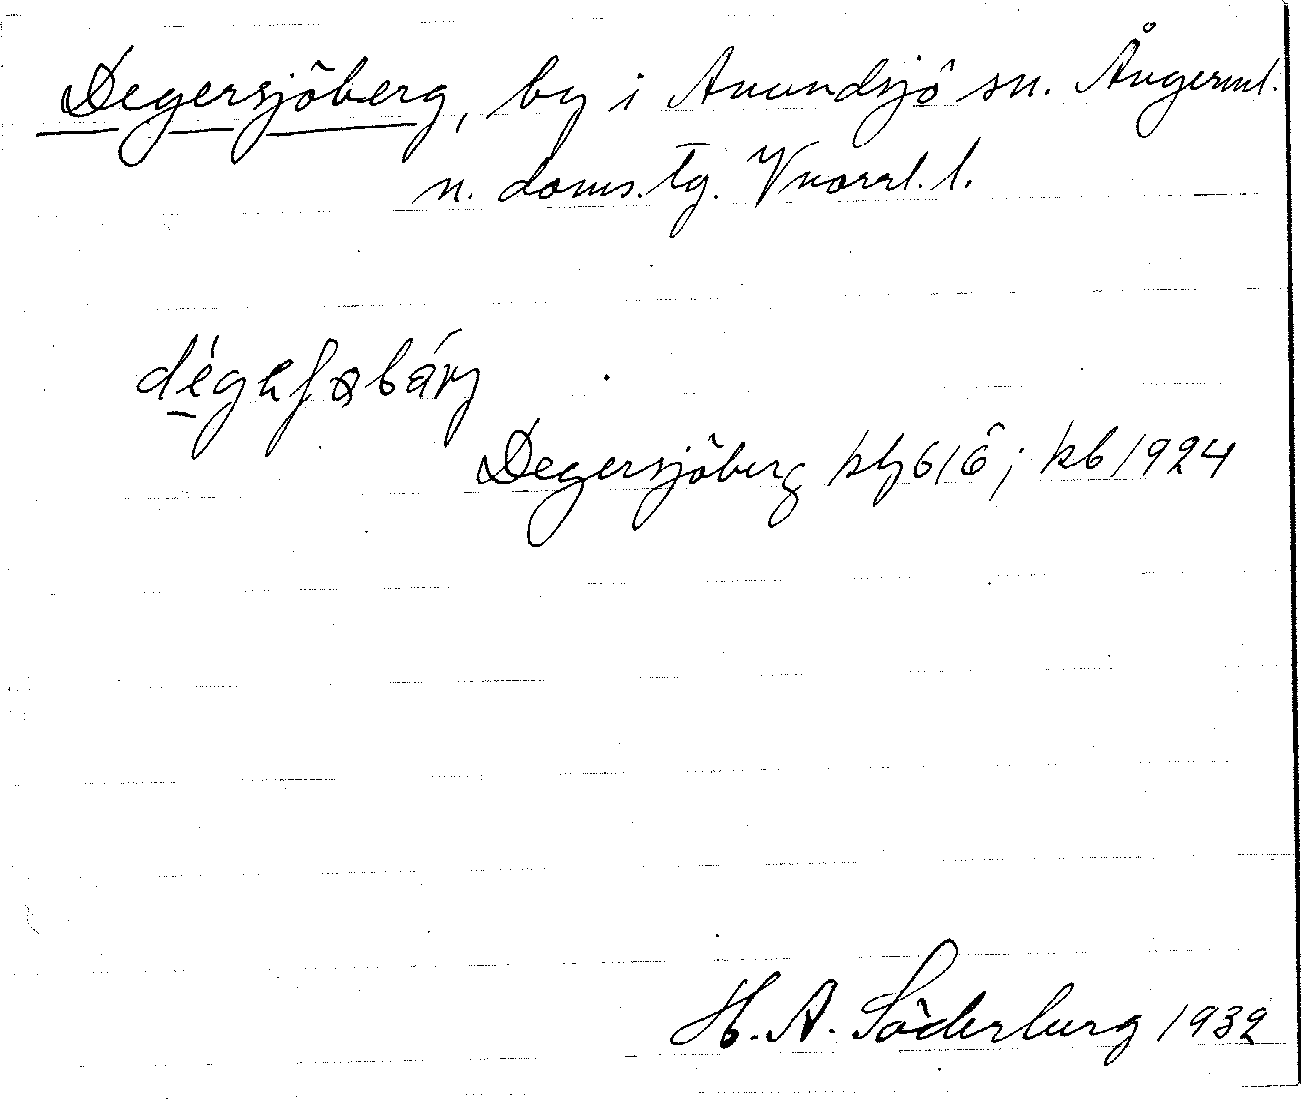 Degersjöberg, by i Anundsjö sn. Ångerml.
n. doms. tg. Vnorrl. l.
Degersjöberg kb 1924
H. A. Söderberg 1932